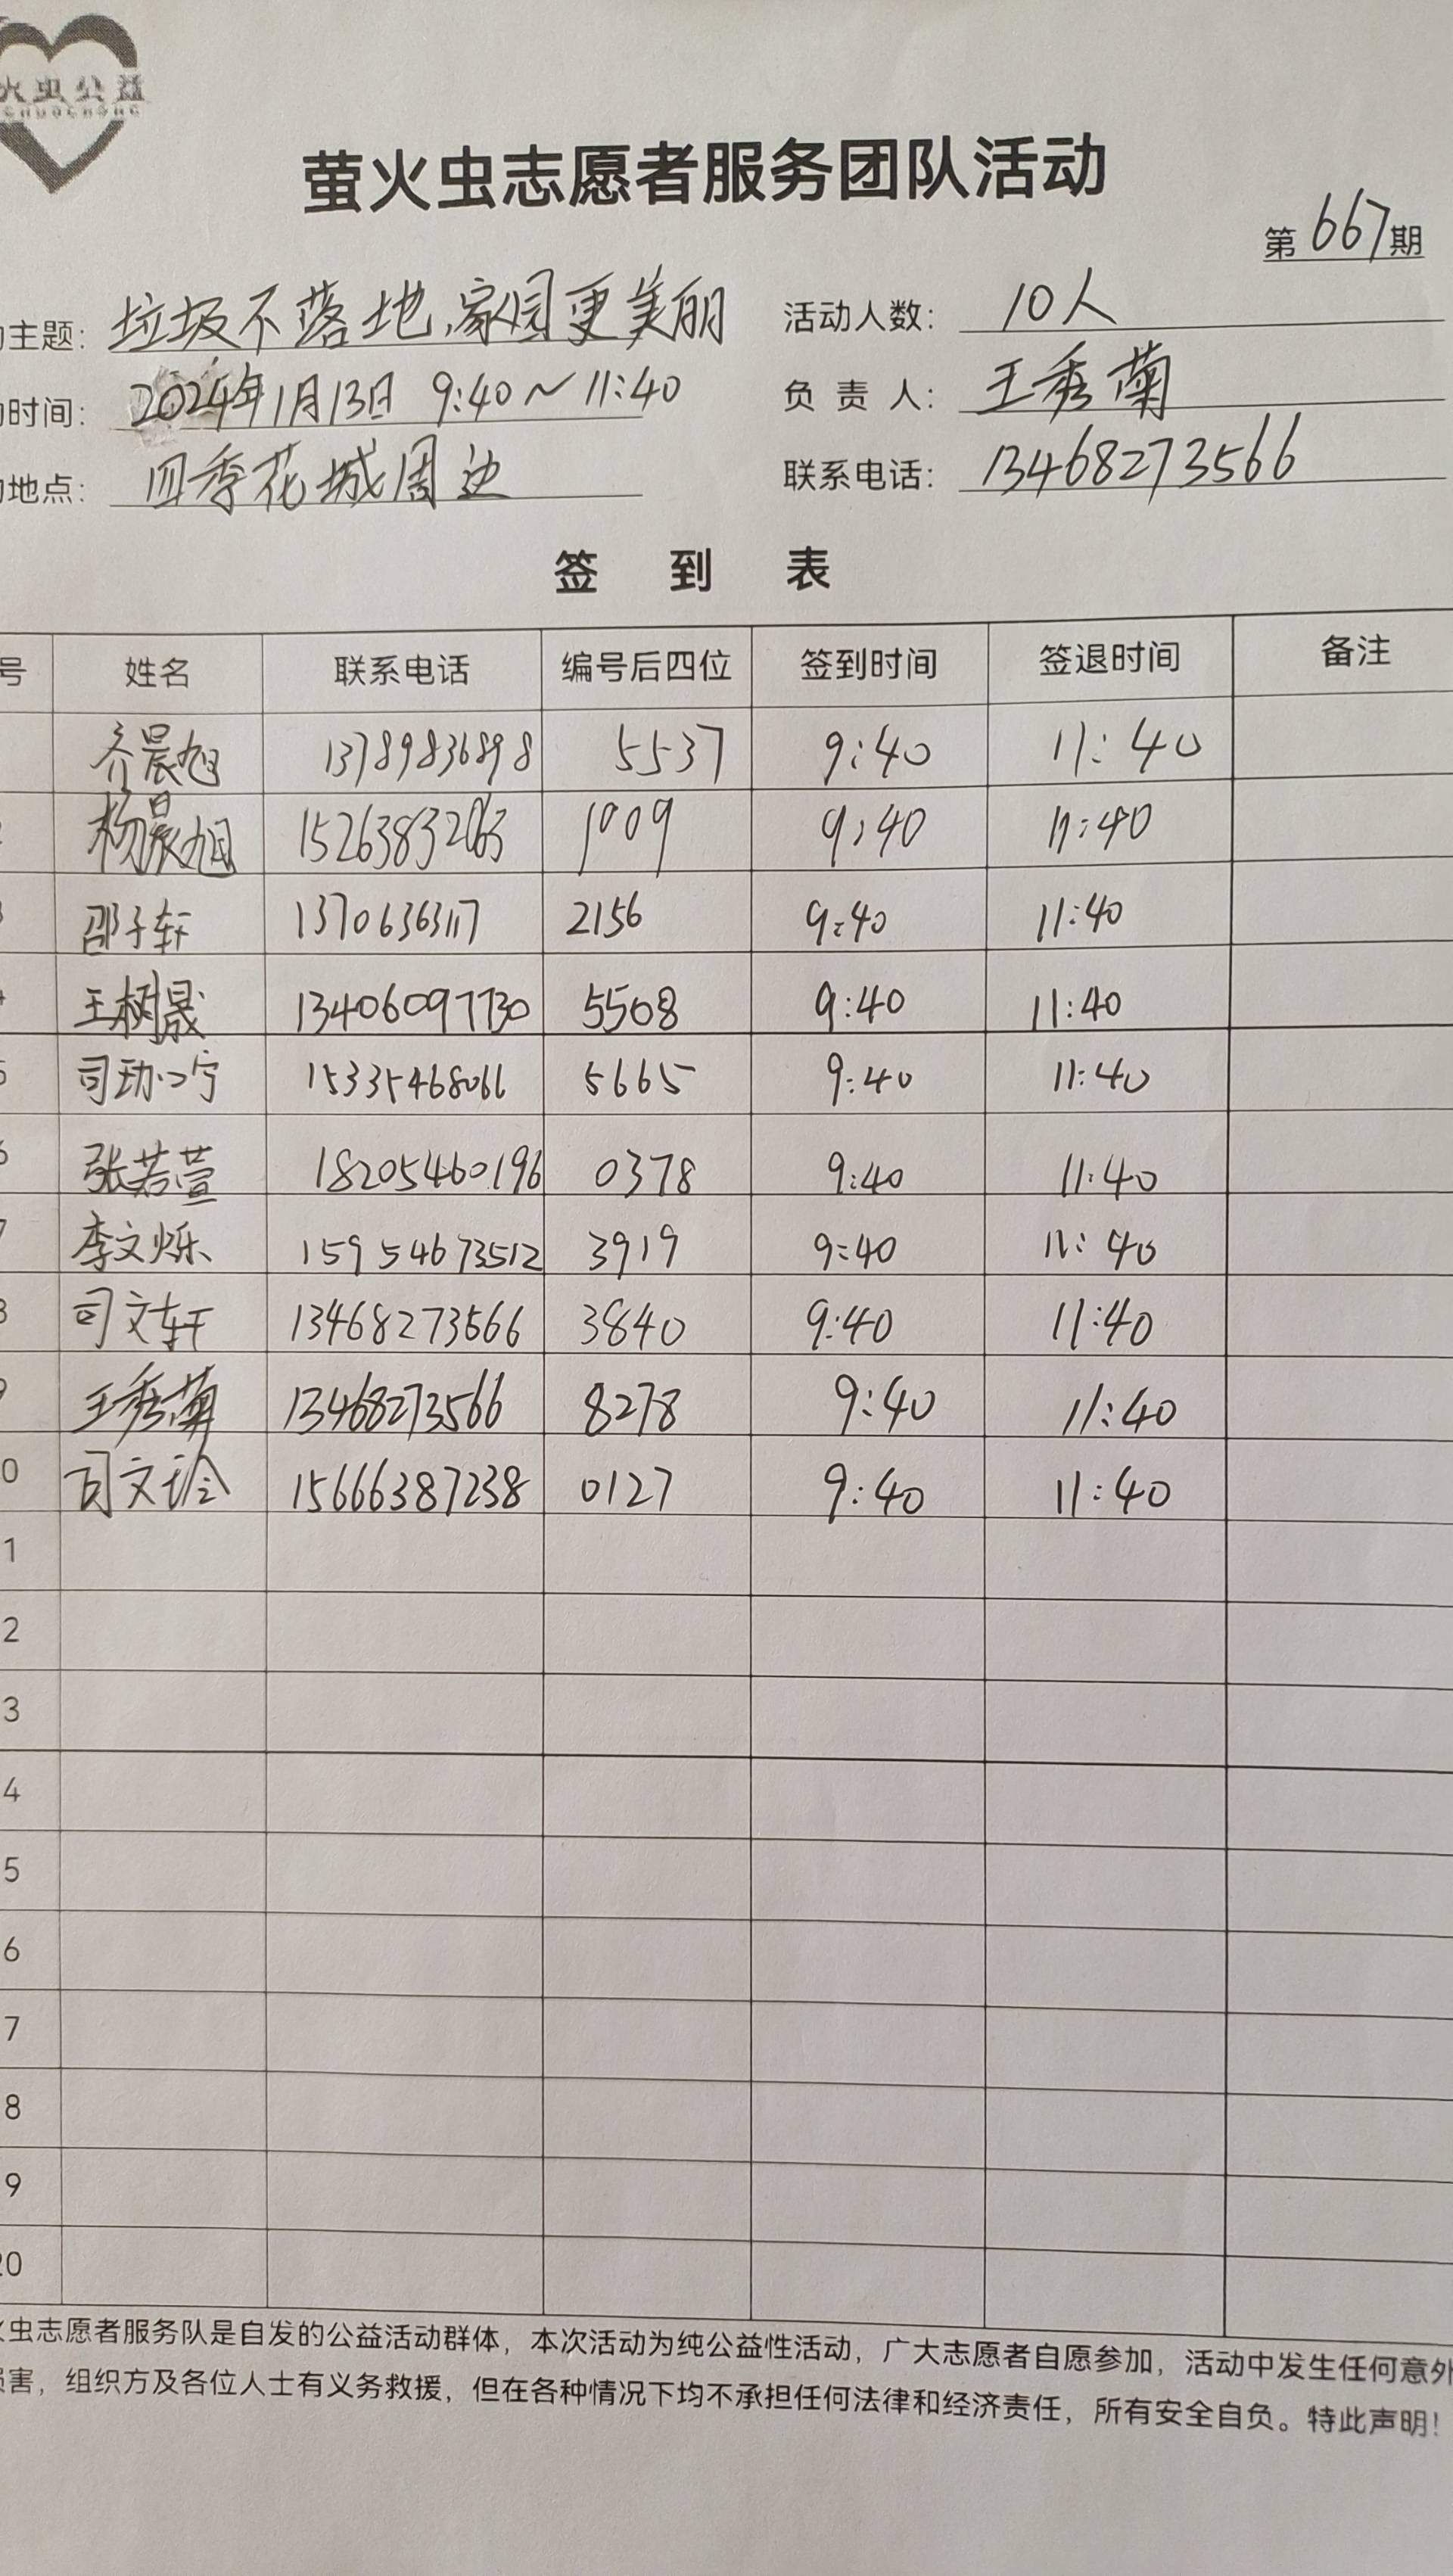 火虫公益
萤火虫志愿者服务团队活动
第667期
主题: 垃圾不落地,家园更美丽 活动人数: 10人
时间: 2024年1月13日 9:40~11:40 负责人: 王秀菊
地点: 四季花城周边 联系电话: 13468273566
签到表
号 姓名 联系电话 编号后四位 签到时间 签退时间 备注
齐晨旭 13789836898 5537 9:40 11:40
杨晨旭 1009 9:40 11:40
邵子轩 13706363117 2156 9:40 11:40
王树晟 13406097730 5508 9:40 11:40
5 司 宁 15335468066 5665 9:40 11:40
6 张若萱 18205460196 0378 9:40 11:40
7 李文烁 15954673512 3919 9:40 11:40
8 司文轩 13468273566 3840 9:40 11:40
9 王秀菊 13468273566 8278 9:40 11:40
0 司文玲 15666387238 0127 9:40 11:40
1
2
3
4
5
6
7
8
9
20
火虫志愿者服务队是自发的公益活动群体，本次活动为纯公益性活动，广大志愿者自愿参加，活动中发生任何意外
损害，组织方及各位人士有义务救援，但在各种情况下均不承担任何法律和经济责任，所有安全自负。特此声明！